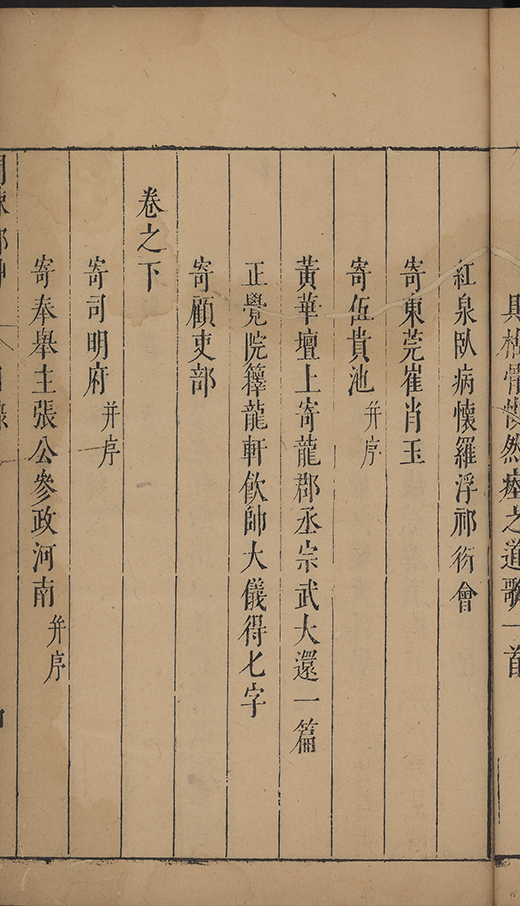 然瘞之道歌一首
紅泉臥病懷羅浮祁衍會
寄東莞崔肖玉
寄伍貴池 并序
黃華壇上寄龍郡丞宗武大還一篇
正覺院籜龍軒飲帥大儀得七字
寄顧吏部
卷之下
寄司明府 并序
寄奉舉主張公參政河南 并序